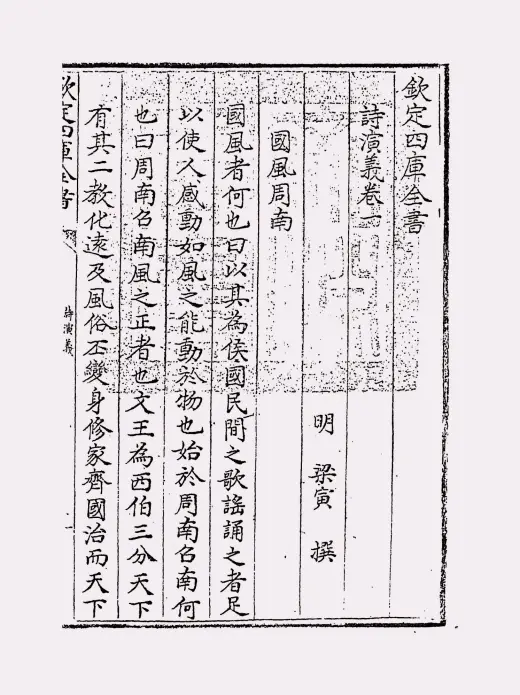 欽定四庫全書
詩演義卷一
明 梁寅 撰
國風周南
國風者何也曰以其為侯國民間之歌謠誦之者足
以使人感動如風之能動於物也始於周南召南何
也曰周南召南風之正者也文王為西伯三分天下
有其二教化遠及風俗丕變身修家齊國治而天下
欽定四庫全書
詩演義
一